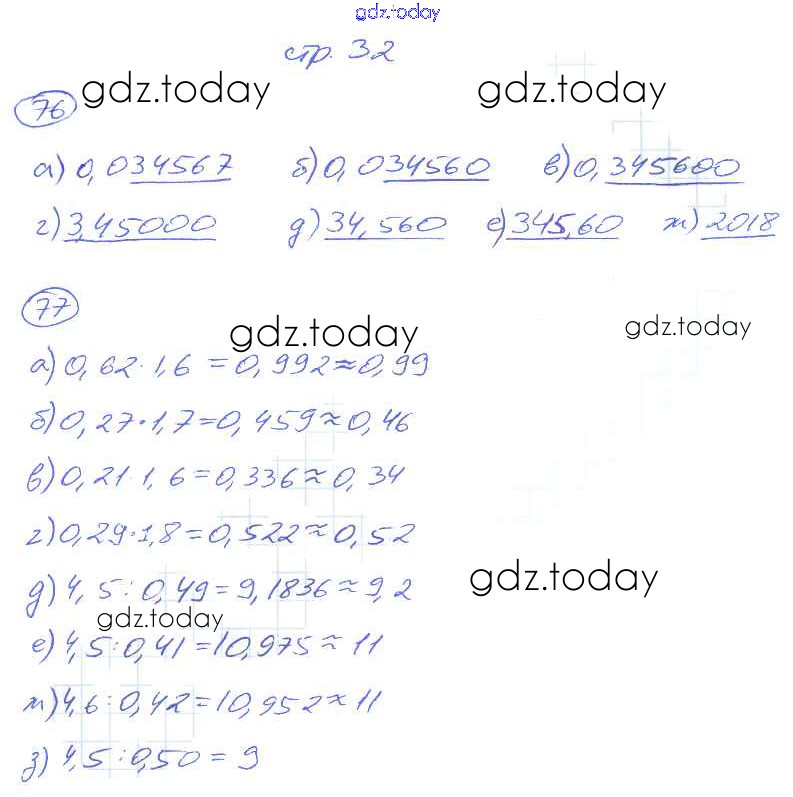 gdz.today
стр. 32
76 gdz.today gdz.today
а) 0,034567 б) 0,034560 в) 0,345600
г) 3,45000 д) 34,560 е) 345,60 ж) 2018
77
gdz.today gdz.today
а) 0,62·1,6 = 0,992≈0,99
б) 0,27·1,7=0,459≈0,46
в) 0,21·1,6=0,336≈0,34
г) 0,29·1,8=0,522≈0,52
gdz.today
д) 4,5:0,49=9,1836≈9,2
gdz.today
е) 4,5:0,41=10,975≈11
ж) 4,6:0,42=10,952≈11
з) 4,5:0,50=9